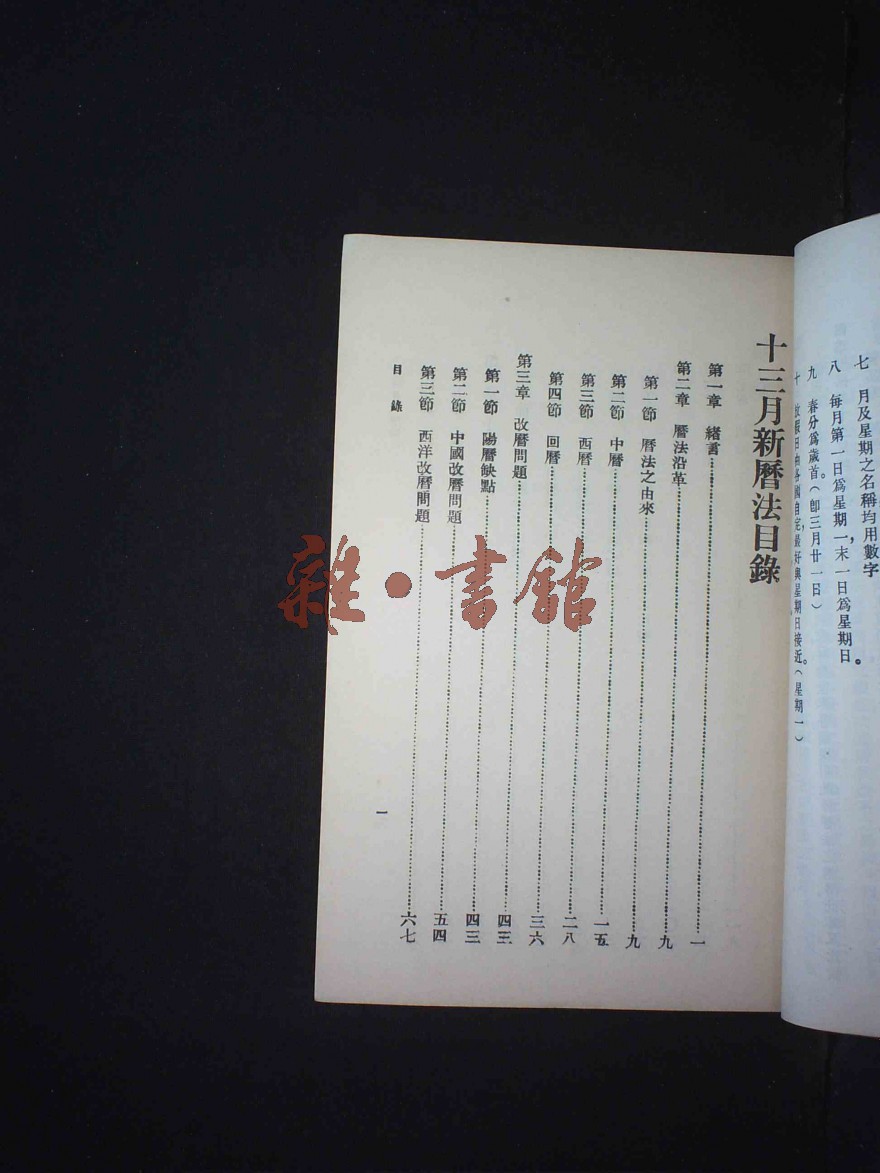 七　月及星期之名稱均用數字
八　每月第一日爲星期一，末一日爲星期日。
九　春分爲歲首（卽三月廿一日）。
十　放假日由各國自定，最好與星期日接近。（星期一）
十三月新曆法目錄
第一章　緒言……一
第二章　曆法沿革……九
第一節　曆法之由來……九
第二節　中曆……一五
第三節　西曆……二八
第四節　回曆……三六
第三章　改曆問題……四三
第一節　陽曆缺點……四三
第二節　中國改曆問題……五四
第三節　西洋改曆問題……六七
目錄
一
雜·書館